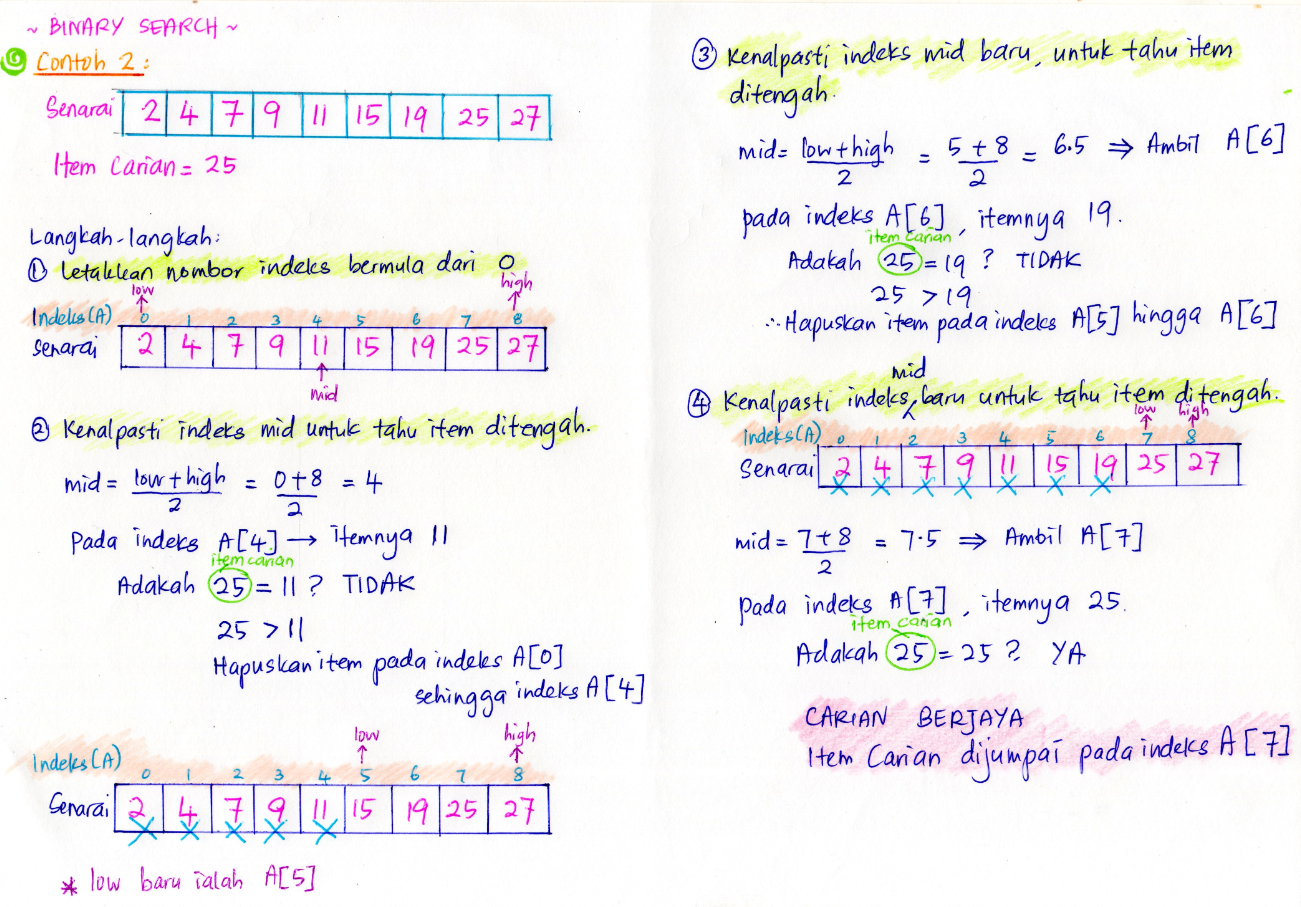 ~ BINARY SEARCH ~
Contoh 2 :
Senarai 2 4 7 9 11 15 19 25 27
Item Carian = 25
Langkah-langkah:
① Letakkan nombor indeks bermula dari 0
low high
Indeks(A) 0 1 2 3 4 5 6 7 8
Senarai 2 4 7 9 11 15 19 25 27
mid
② Kenalpasti indeks mid untuk tahu item ditengah.
mid = low + high / 2 = 0+8 / 2 = 4
Pada indeks A[4] → itemnya 11
item carian
Adakah 25 = 11 ? TIDAK
25 > 11
Hapuskan item pada indeks A[0]
sehingga indeks A[4]
low high
Indeks(A) 0 1 2 3 4 5 6 7 8
Senarai 2 4 7 9 11 15 19 25 27
* low baru ialah A[5]
③ Kenalpasti indeks mid baru, untuk tahu item
ditengah.
mid = low+high / 2 = 5+8 / 2 = 6.5 ⇒ Ambil A[6]
pada indeks A[6], itemnya 19.
item carian
Adakah 25 = 19 ? TIDAK
25 > 19
∴ Hapuskan item pada indeks A[5] hingga A[6]
mid
④ Kenalpasti indeks ^ baru untuk tahu item ditengah.
low high
Indeks(A) 0 1 2 3 4 5 6 7 8
Senarai 2 4 7 9 11 15 19 25 27
mid = 7+8 / 2 = 7.5 ⇒ Ambil A[7]
Pada indeks A[7], itemnya 25.
item carian
Adakah 25 = 25 ? YA
CARIAN BERJAYA
Item Carian dijumpai pada indeks A[7]